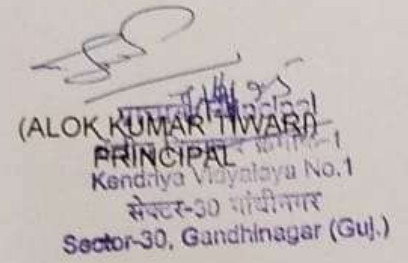 (ALOK KUMAR TIWARI)
PRINCIPAL
Kendriya Vidyalaya No.1
सेक्टर-30 गांधीनगर
Sector-30, Gandhinagar (Guj.)